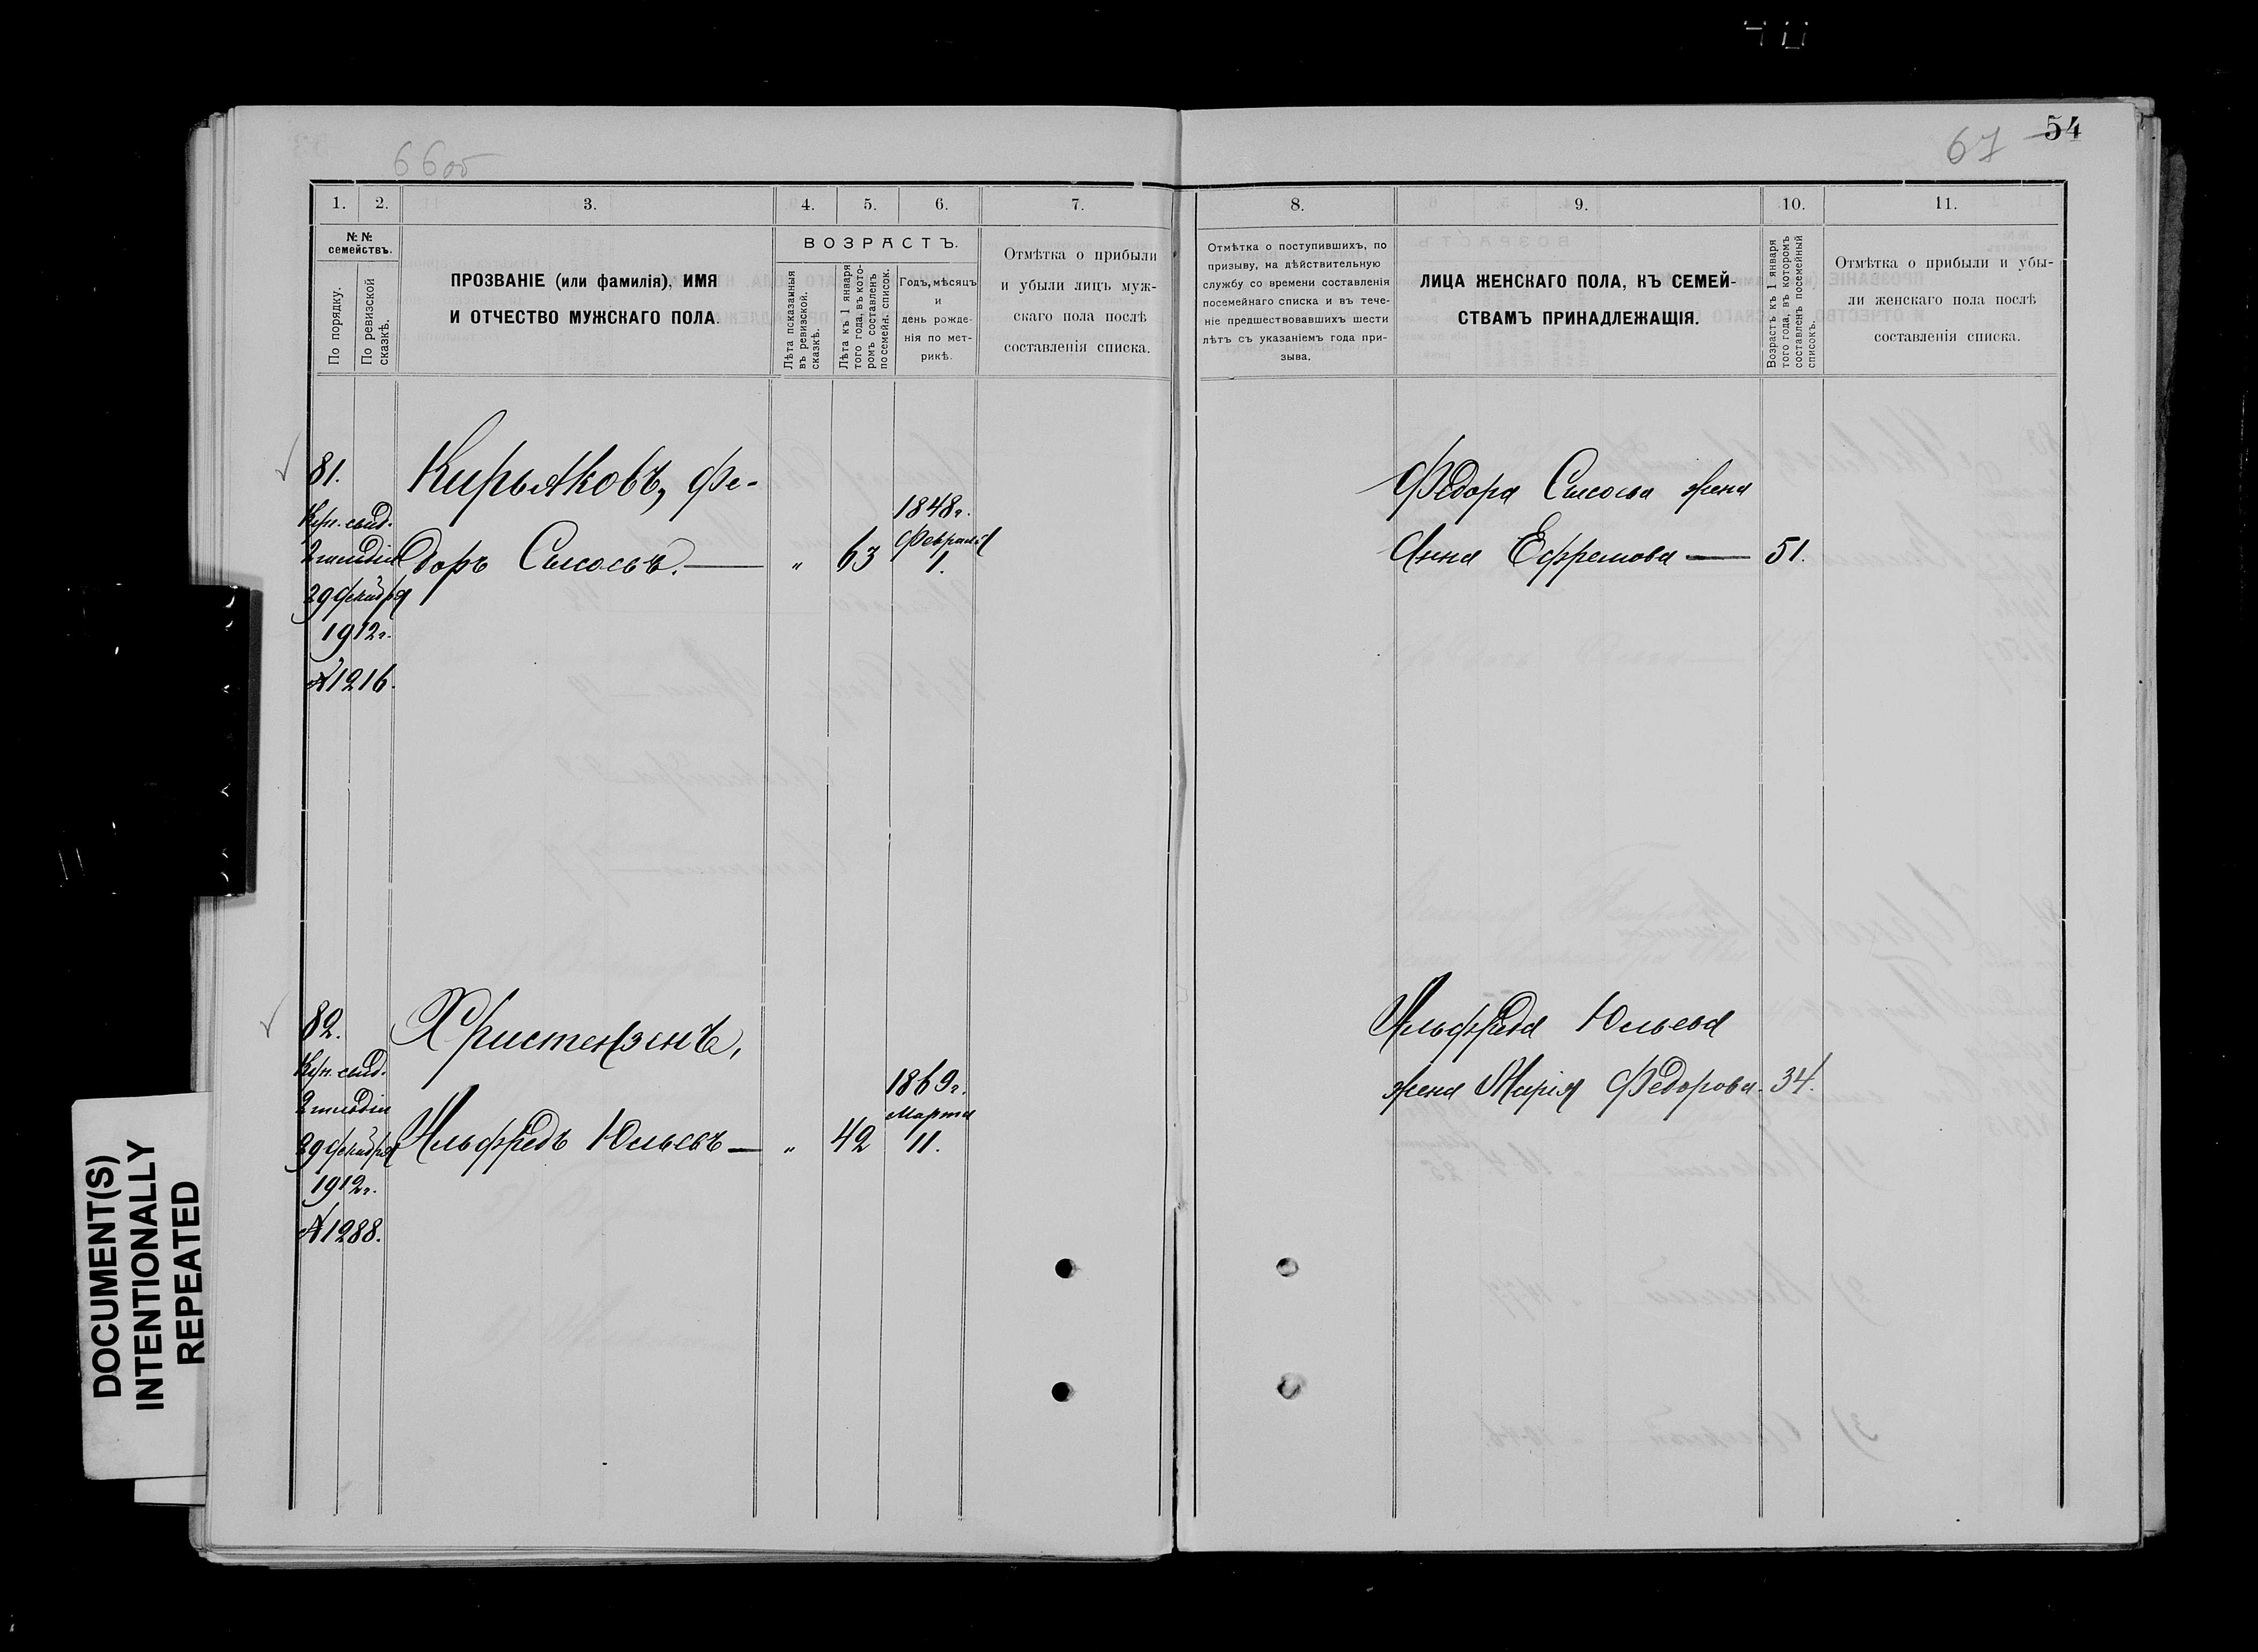 54
67
66об
1. 2. 3. 4. 5. 6. 7. 8. 9. 10. 11.
№ №
семействъ.
По порядку.
По ревизской
сказкѣ.
ПРОЗВАНІЕ (или фамилія), ИМЯ
И ОТЧЕСТВО МУЖСКАГО ПОЛА.
ВОЗРАСТЪ.
Лѣта показанныя
въ ревизской.
сказкѣ.
Лѣта къ 1 января
того года, въ кото-
ромъ составленъ
посемейн. список.
Годъ, мѣсяцъ
и
день рожде-
нія по мет-
рикѣ.
Отмѣтка о прибыли
и убыли лицъ муж-
скаго пола послѣ
составленія списка.
Отмѣтка о поступившихъ, по
призыву, на дѣйствительную
службу со времени составленія
посемейнаго списка и въ тече-
ніе предшествовавшихъ шести
лѣтъ съ указаніемъ года при-
зыва.
ЛИЦА ЖЕНСКАГО ПОЛА, КЪ СЕМЕЙ-
СТВАМЪ ПРИНАДЛЕЖАЩІЯ.
Возрастъ къ 1 января
того года, въ которомъ
составленъ посемейный
списокъ.
Отмѣтка о прибыли и убы-
ли женскаго пола послѣ
составленія списка.
81. Кирьяковъ, Фе-
доръ 〃 63
1848г.
Февраля
1.
29 декабря
1912г.
№1216.
Федора жена
Анна Ефремова — 51.
82. Христензенъ,
Альфредъ Юльевъ — 〃 42
1869г.
Марта
11.
29 декабря
1912г.
№1288.
Альфреда Юльева
жена Марія Федорова. 34.
DOCUMENT(S)
INTENTIONALLY
REPEATED